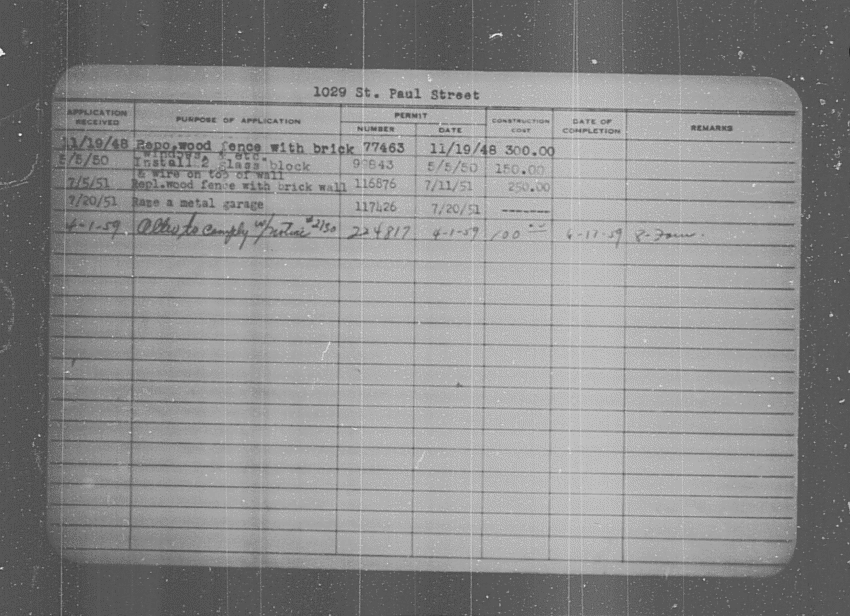 1029 St. Paul Street
APPLICATION RECEIVED PURPOSE OF APPLICATION PERMIT NUMBER DATE CONSTRUCTION COST DATE OF COMPLETION REMARKS
11/19/48 Repo.wood fence with brick 77463 11/19/48 300.00
windows, & etc.
5/5/50 Install 2 glass block 99843 5/5/50 150.00
& wire on top of wall
7/5/51 Repl.wood fence with brick wall 116876 7/11/51 250.00
7/20/51 Raze a metal garage 117426 7/20/51 -------
4-1-59 to comply w/notice #2130 224817 4-1-59 100 -- 6-17-59